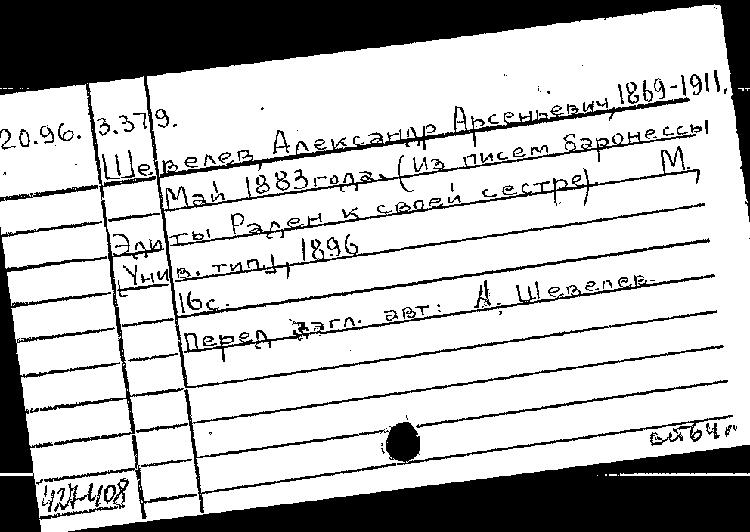 20.96. 3.379.
Шевелев, Александр Арсеньевич, 1869-1911.
Май 1883 года. (Из писем баронессы
Эдиты Раден к своей сестре) М.,
[Унив. тип.], 1896
16 с.
Перед загл. авт: А. Шевелев.
427-408